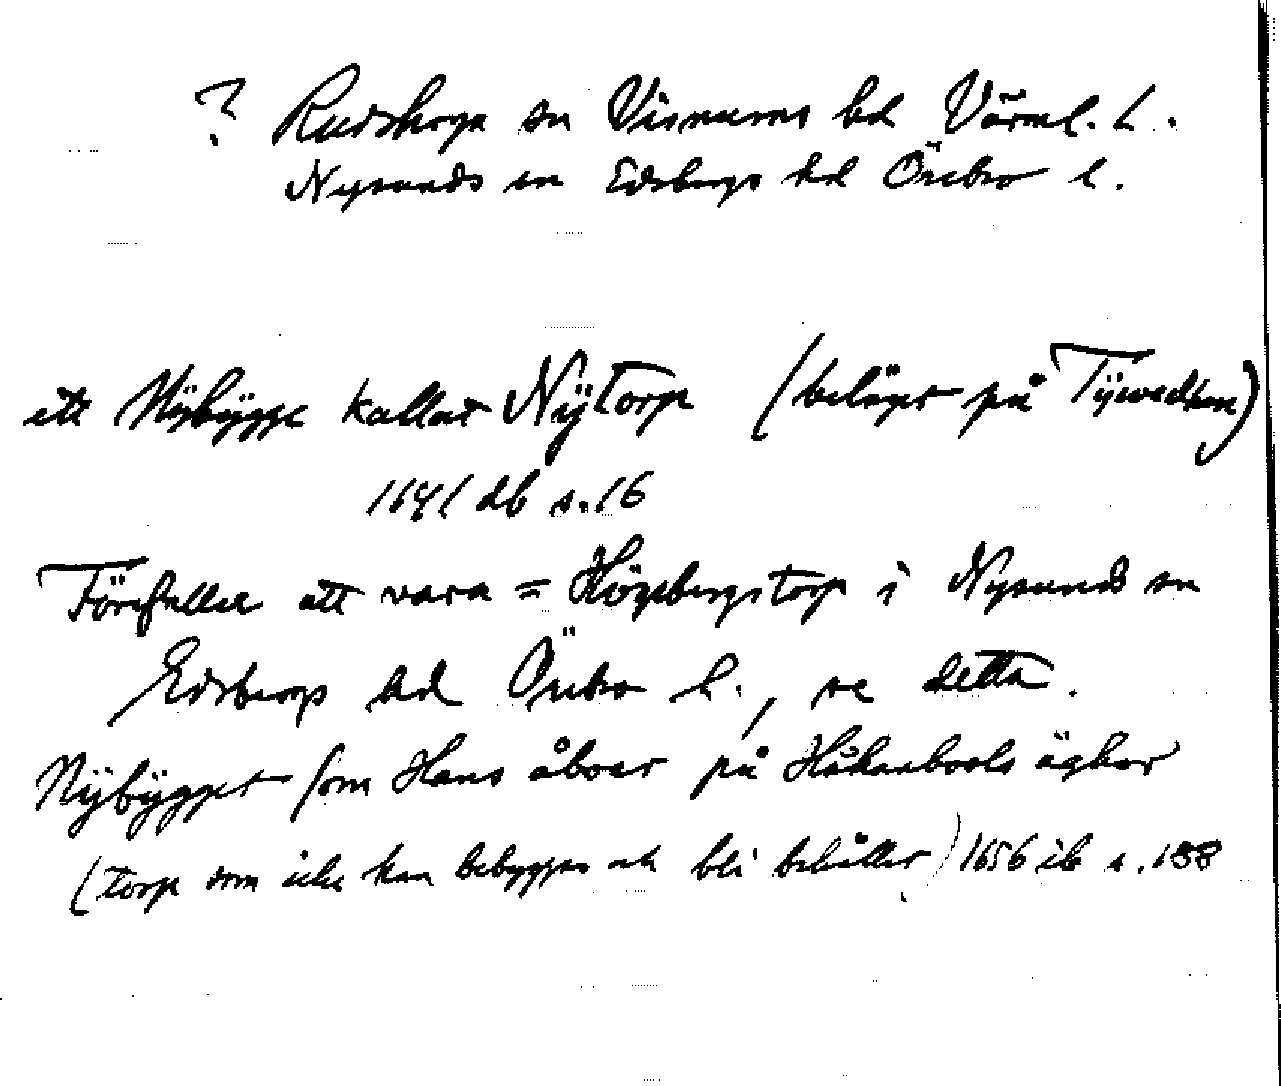 ? Rudskoga sn Visnums hd Värml. l.
Nysunds sn Edsbergs hd Örebro l.
ett Nÿbÿgge kallat Nÿtorp (beläget på Tÿwedhen)
1641 db s. 16
Förefaller att vara = Högebergstorp i Nysunds sn
Edsbergs hd Örebro l., se detta.
Nÿbÿgget som Hans åboer på Håkanbools ägher
(torp som icke kan bebyggas och bli behållet) 1656 ib s. 188